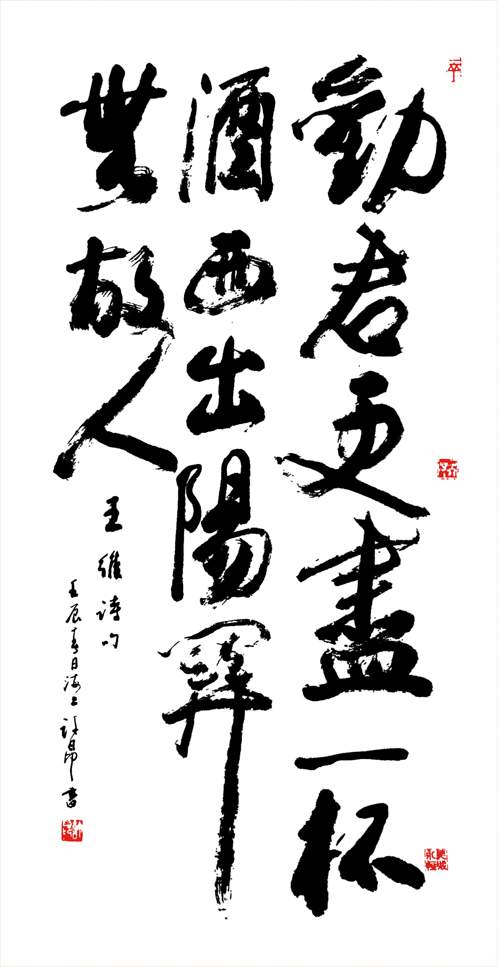 勸君更盡一杯
酒西出陽關
無故人
王維詩句
壬辰春日海上許昂書